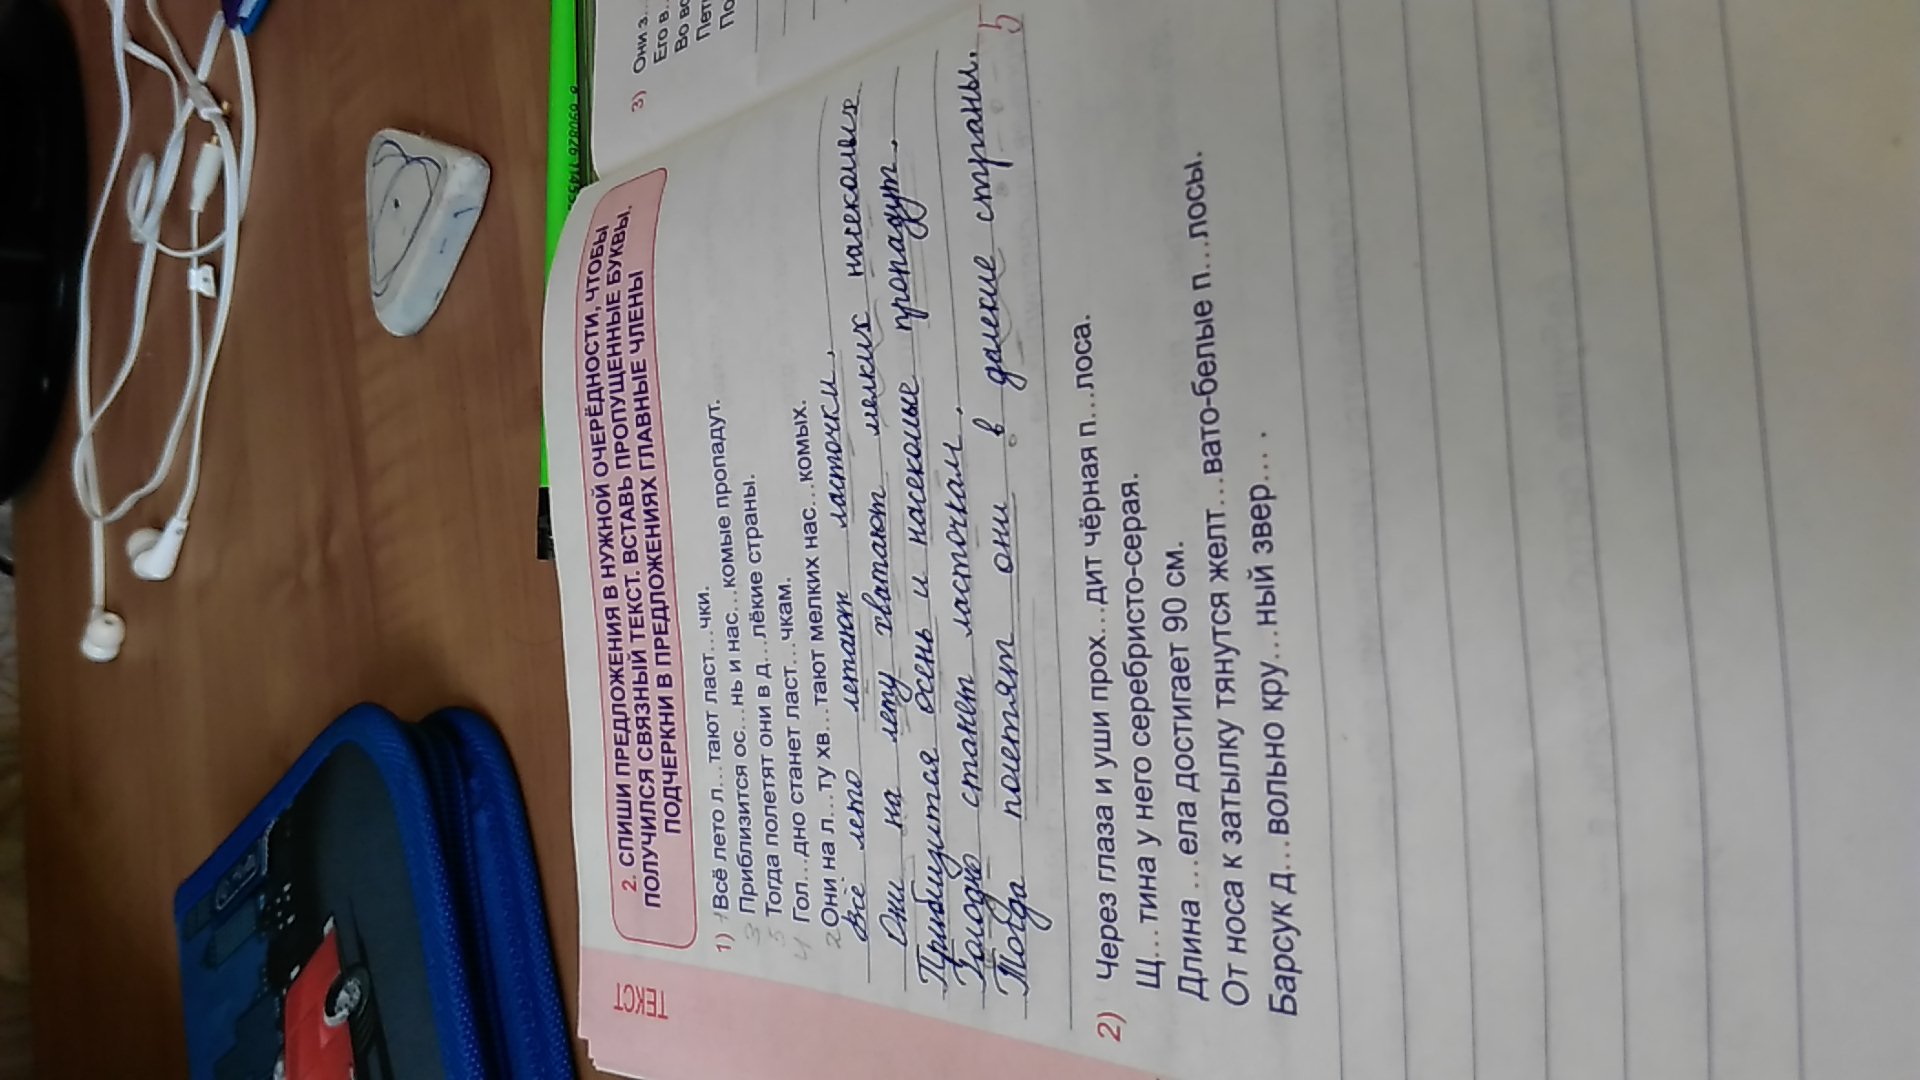 ТЕКСТ
2. СПИШИ ПРЕДЛОЖЕНИЯ В НУЖНОЙ ОЧЕРЁДНОСТИ, ЧТОБЫ
ПОЛУЧИЛСЯ СВЯЗНЫЙ ТЕКСТ. ВСТАВЬ ПРОПУЩЕННЫЕ БУКВЫ.
ПОДЧЕРКНИ В ПРЕДЛОЖЕНИЯХ ГЛАВНЫЕ ЧЛЕНЫ
1) 1 Всё лето л...тают ласт...чки.
3 Приблизится ос...нь и нас...комые пропадут.
5 Тогда полетят они в д...лёкие страны.
4 Гол...дно станет ласт...чкам.
2 Они на л...ту хв...тают мелких нас...комых.
Всё лето летают ласточки.
Они на лету хватают мелких насекомых
осень и насекомые пропадут.
станет ласточкам.
полетят они в далекие страны.
5
2) Через глаза и уши прох...дит чёрная п...лоса.
Щ...тина у него серебристо-серая.
Длина ...ела достигает 90 см.
От носа к затылку тянутся желт...вато-белые п...лосы.
Барсук д...вольно кру...ный звер... .
3) Они з...
Его в...
Во вс
Пет
По